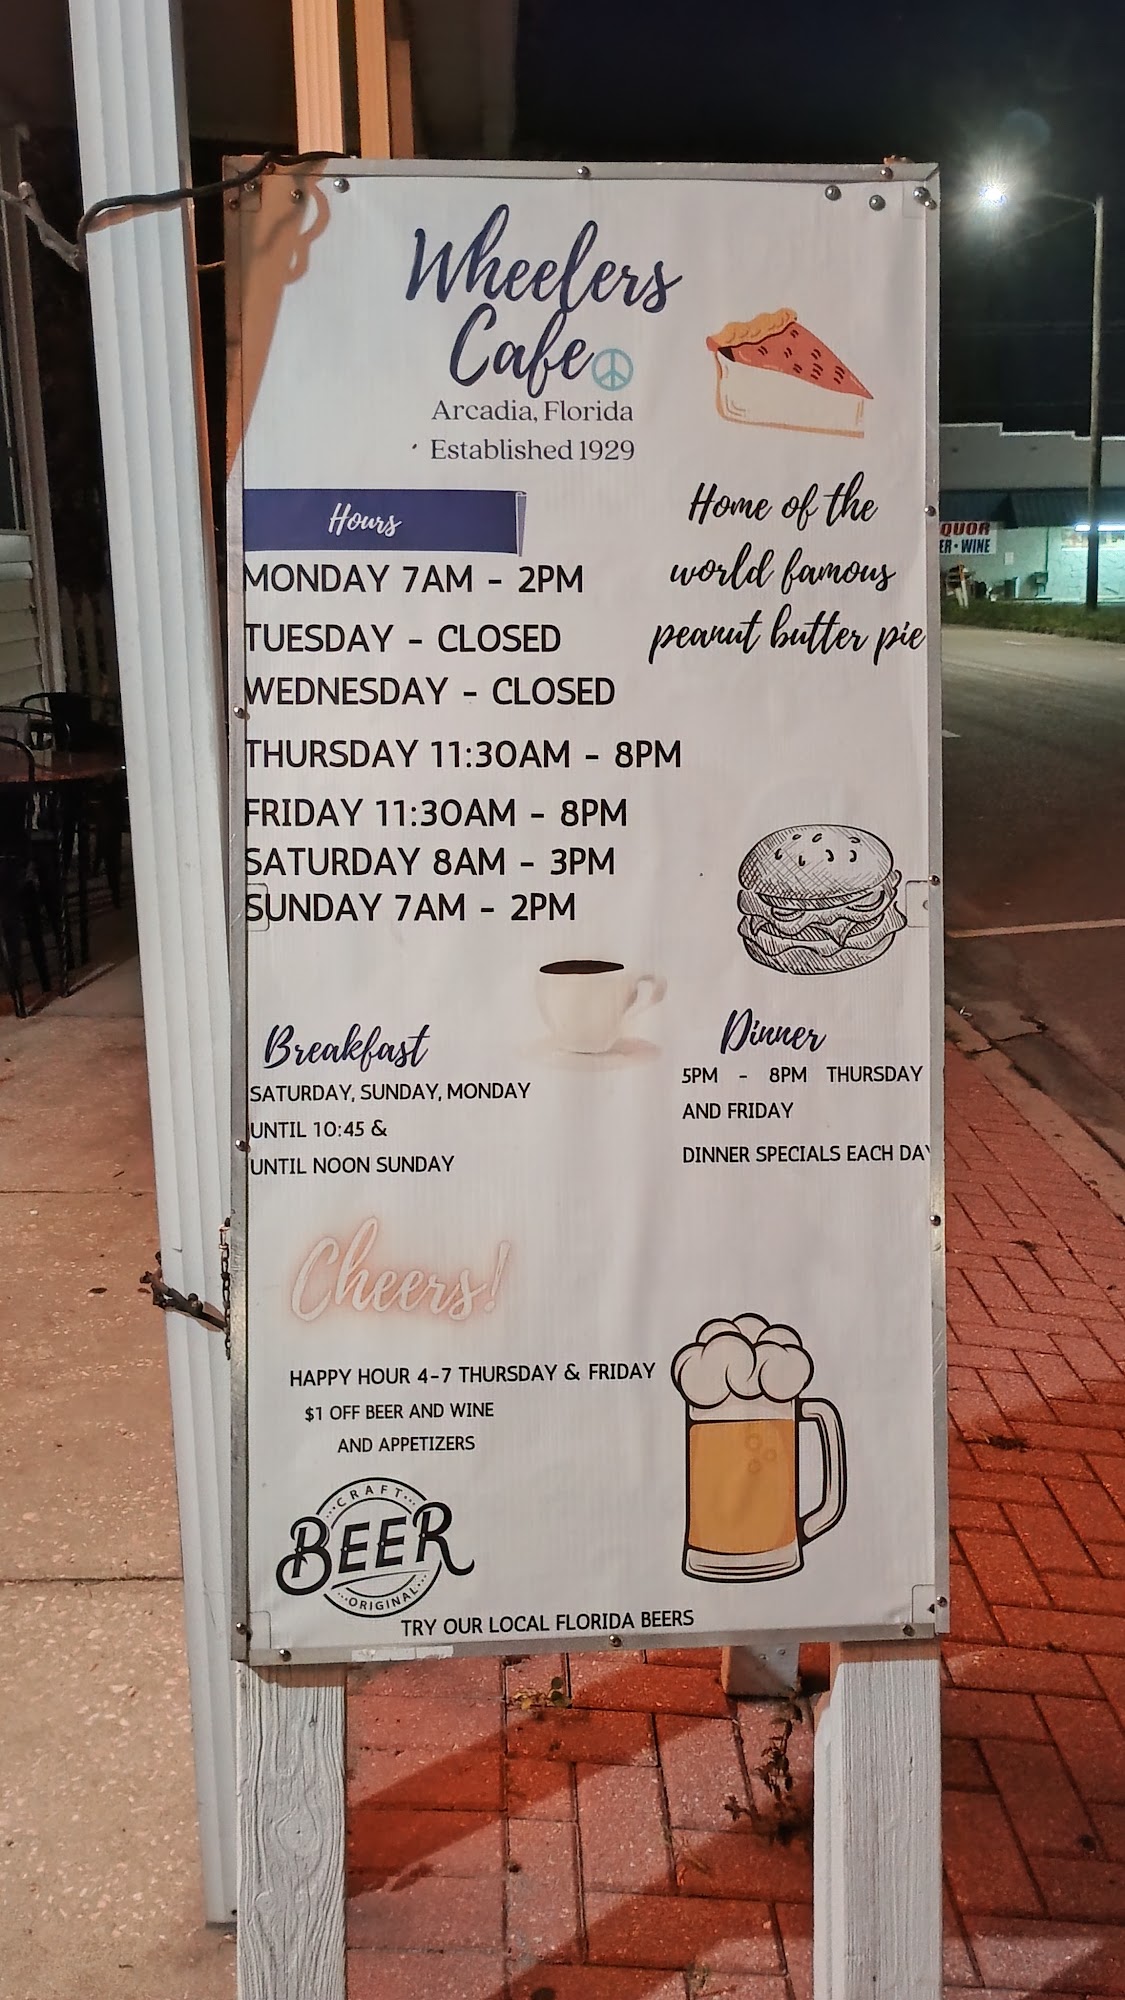 Wheelers
Cafe
Arcadia, Florida
Established 1929
Hours
MONDAY 7AM - 2PM
TUESDAY - CLOSED
WEDNESDAY - CLOSED
THURSDAY 11:30AM - 8PM
FRIDAY 11:30AM - 8PM
SATURDAY 8AM - 3PM
SUNDAY 7AM - 2PM
Home of the
world famous
peanut butter pie
Breakfast
SATURDAY, SUNDAY, MONDAY
UNTIL 10:45 &
UNTIL NOON SUNDAY
Dinner
5PM - 8PM THURSDAY
AND FRIDAY
DINNER SPECIALS EACH DAY
Cheers!
HAPPY HOUR 4-7 THURSDAY & FRIDAY
$1 OFF BEER AND WINE
AND APPETIZERS
CRAFT
BEER
ORIGINAL
TRY OUR LOCAL FLORIDA BEERS
QUOR
ER • WINE